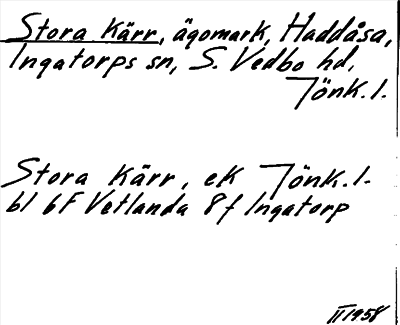 Stora Kärr, ägomark, Haddåsa,
Ingatorps sn, S. Vedbo hd,
Jönk. l.
Stora Kärr, ek Jönk. l.
bl 6F Vetlanda 8f Ingatorp
II 1958